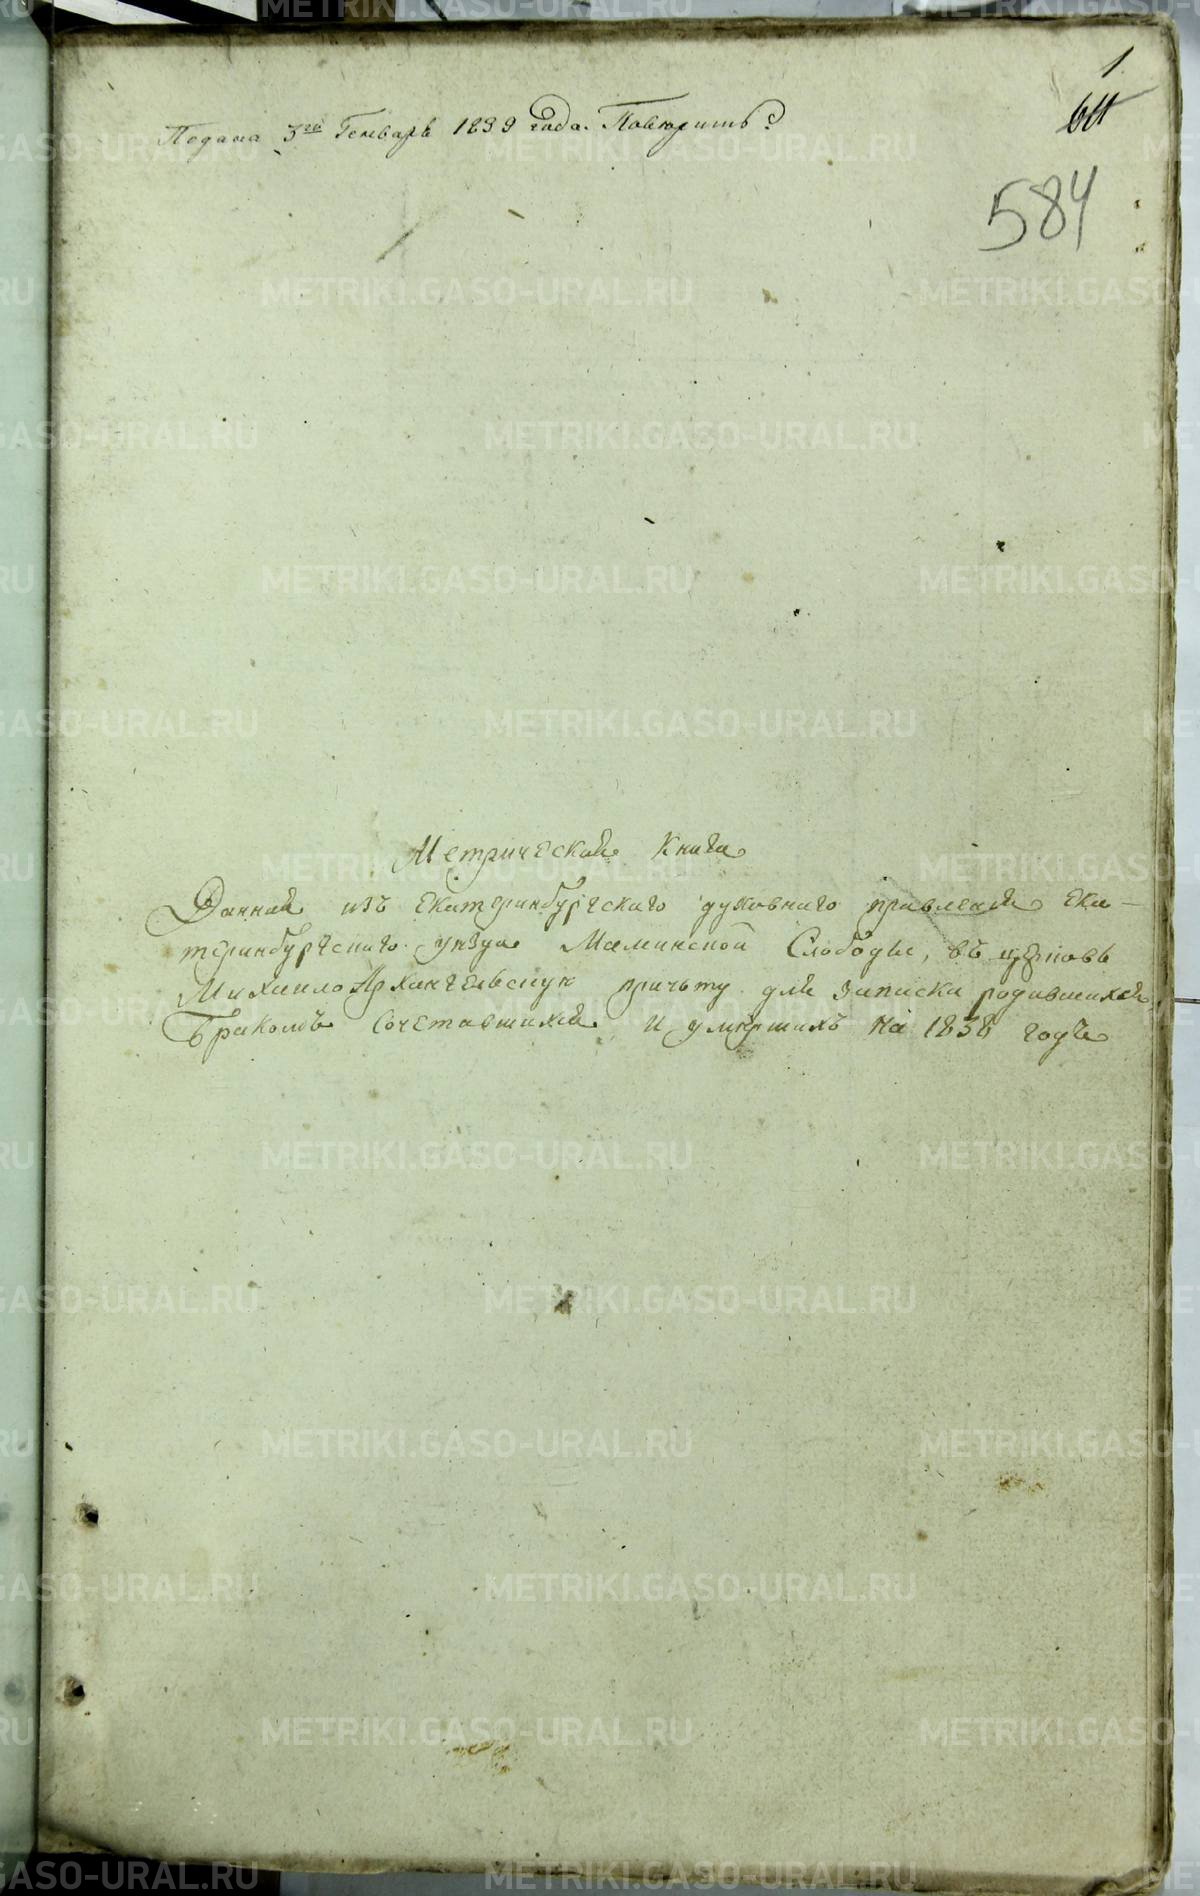 1
Подана 3го Генваря 1839 года. Повѣрить
584
Метрическая Книга
Данная изъ Екатеринбургскаго духовнаго правленія Ека-
теринбургскаго уѣзда Маминской Слободы, въ церковь
Михаило Архангельскую причту для записки родившихся,
Бракомъ сочетавшихся и умершихъ на 1838 годъ
METRIKI.GASO-URAL.RU